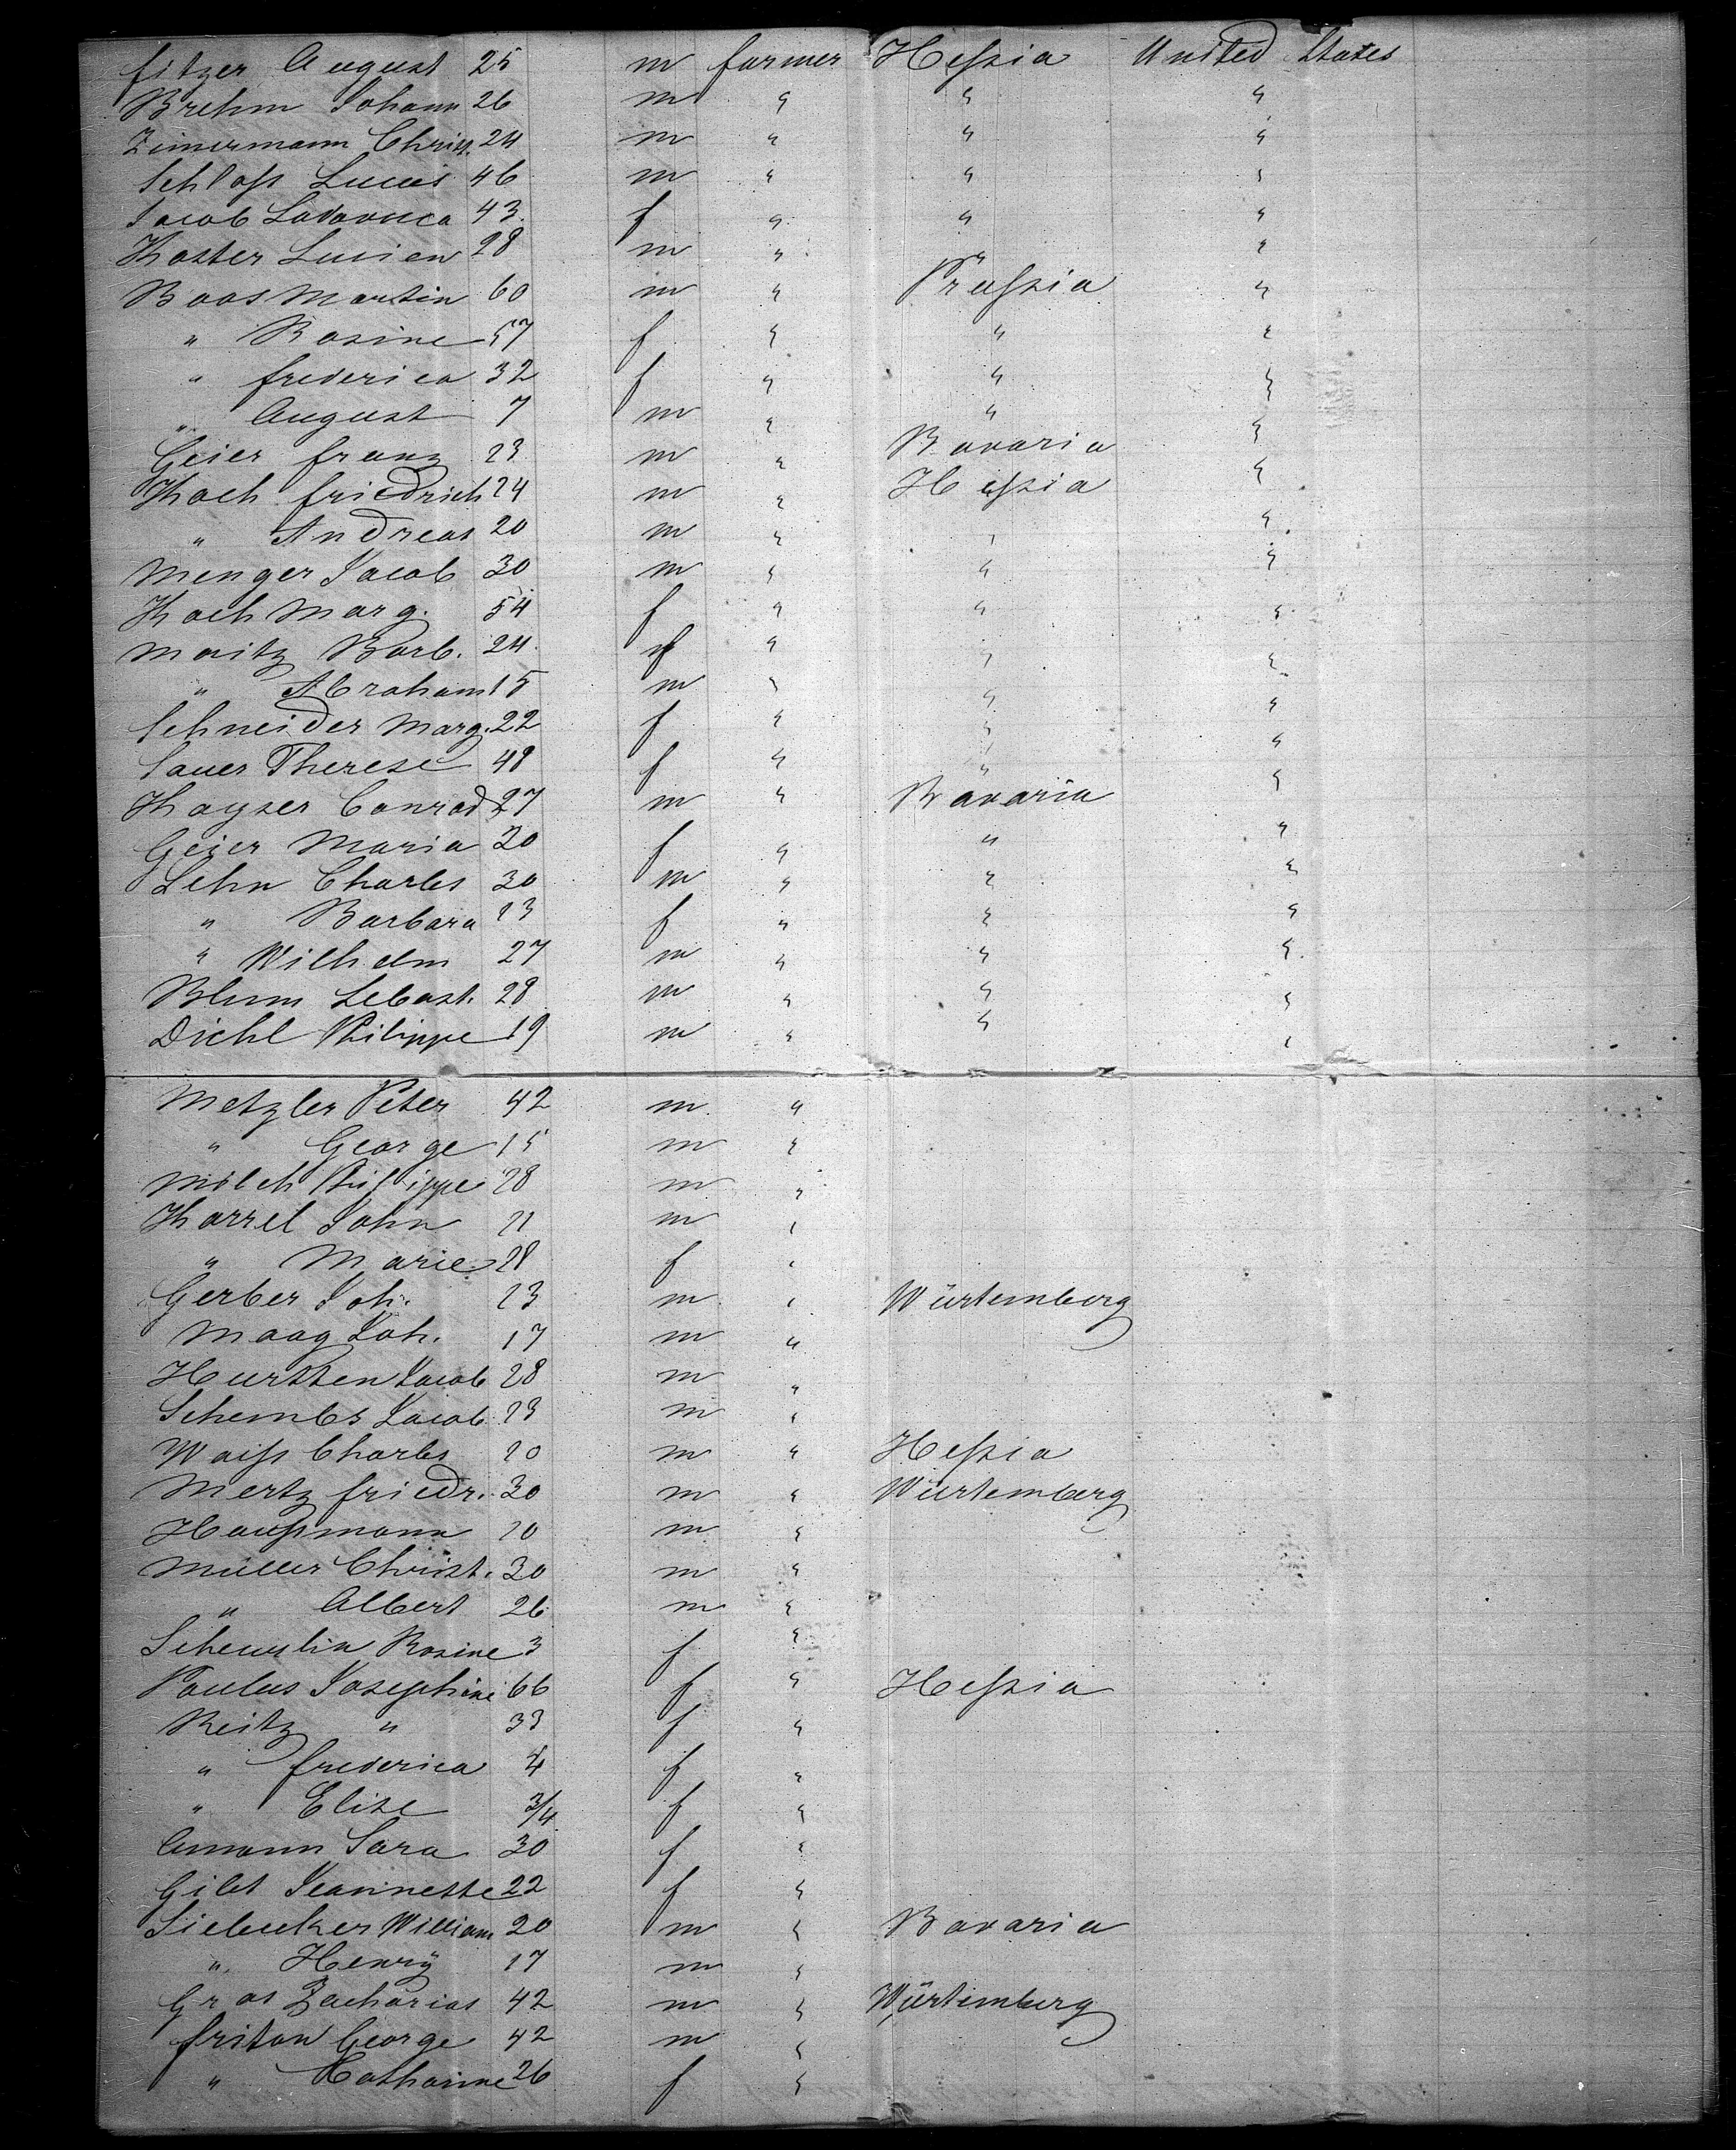 Fitzer August 25 m farmer Heſsia United States
Brehm Johann 26 m " " "
Zimermann Christ. 24 m " " "
Schloſs Louis 46 m " " "
Jacob Ludovica 43 f " " "
Koster Lucien 28 m " " "
Boos Martin 60 m " Pruſsia "
" Rosine 57 f " " "
" Frederica 32 f " " "
" August 7 m " " "
Geier Franz 23 m " Bavaria "
Koch Friedrich 24 m " Heſsia "
" Andreas 20 m " " "
Menger Jacob 30 m " " "
Koch Marg. 54 f " " "
Moritz Barb. 24 f " " "
" Abraham 15 m " " "
Schneider Marg. 22 f " " "
Sauer Therese 48 f " " "
Kayser Conrad 27 m " Bavaria "
Geier Maria 20 f " " "
Lehn Charles 30 m " " "
" Barbara 23 f " " "
" Wilhelm 27 m " " "
Blum Sebast. 28 m " " "
Diehl Philippe 19 m " " "
Metzler Peter 42 m "
" George 15 m "
Milch Philippe 28 m "
Korrel John 21 m "
" Marie 28 f "
Gerber Joh. 23 m " Würtemberg
Maag Joh. 17 m "
Hurtten Jacob 28 m "
Schembs Jacob 23 m "
Waiſs Charles 20 m " Heſsia
Mertz Friedr. 30 m " Würtemberg
Hauſsmann 20 m "
Müller Christ. 30 m "
" Albert 26 m "
Rosine 3 f "
Paulus Josephine 66 f " Heſsia
Reitz " 33 f "
" Frederica 4 f "
" Elise 3/4 f "
Amann Sara 30 f "
Gilet Jeannette 22 f "
Siebecker William 20 m " Bavaria
" Henry 17 m "
Gros Zacharias 42 m " Würtemberg
Friton George 42 m "
" Catharine 26 f "